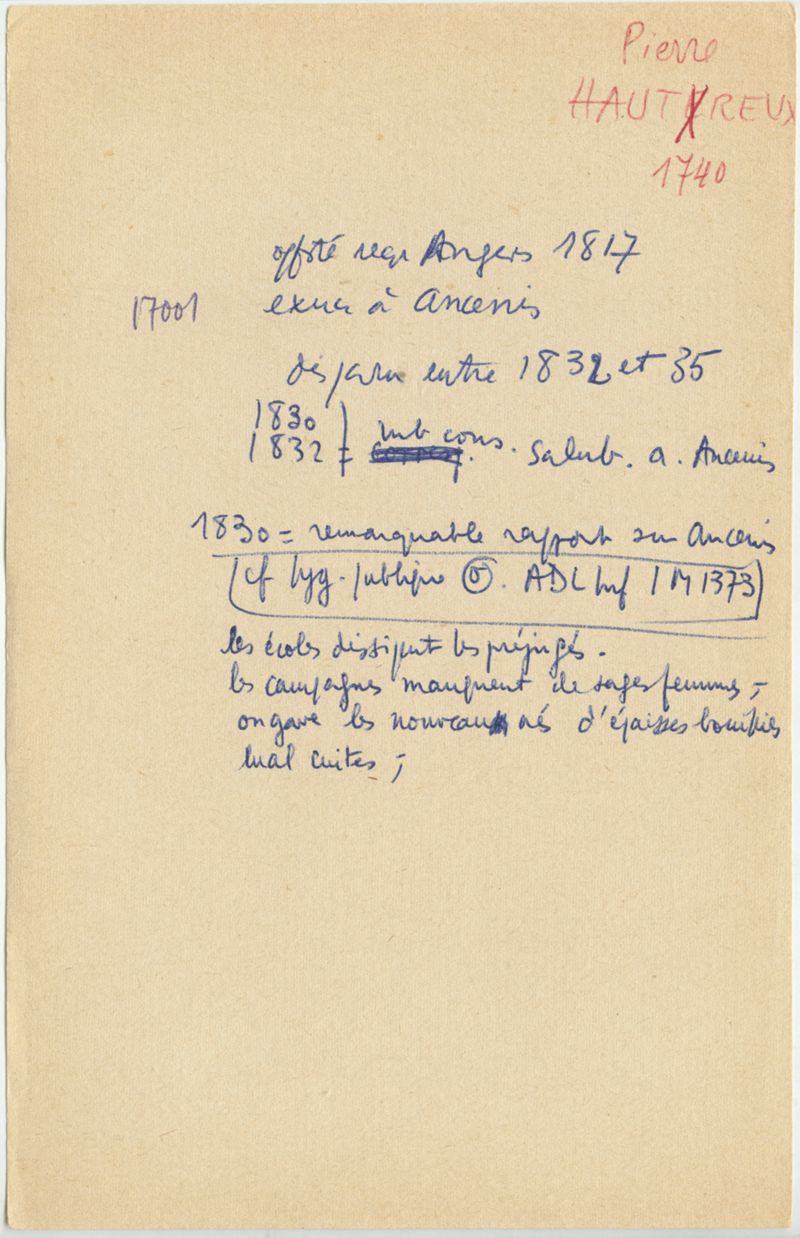 Pierre
HAUTREUX
1740
offsté reçu Angers 1817
17001 exerce à Ancenis
disparu entre 1832 et 35
1830
1832 = mb cons. salub. a. Ancenis
1830 = remarquable rapport sur Ancenis
(cf hyg. publique ADL Inf 1 M 1373)
les écoles dissipent les préjugés.
les campagnes manquent de sages femmes, -
on gave les nouveaux nés d'épaisses bouillies
mal cuites, -